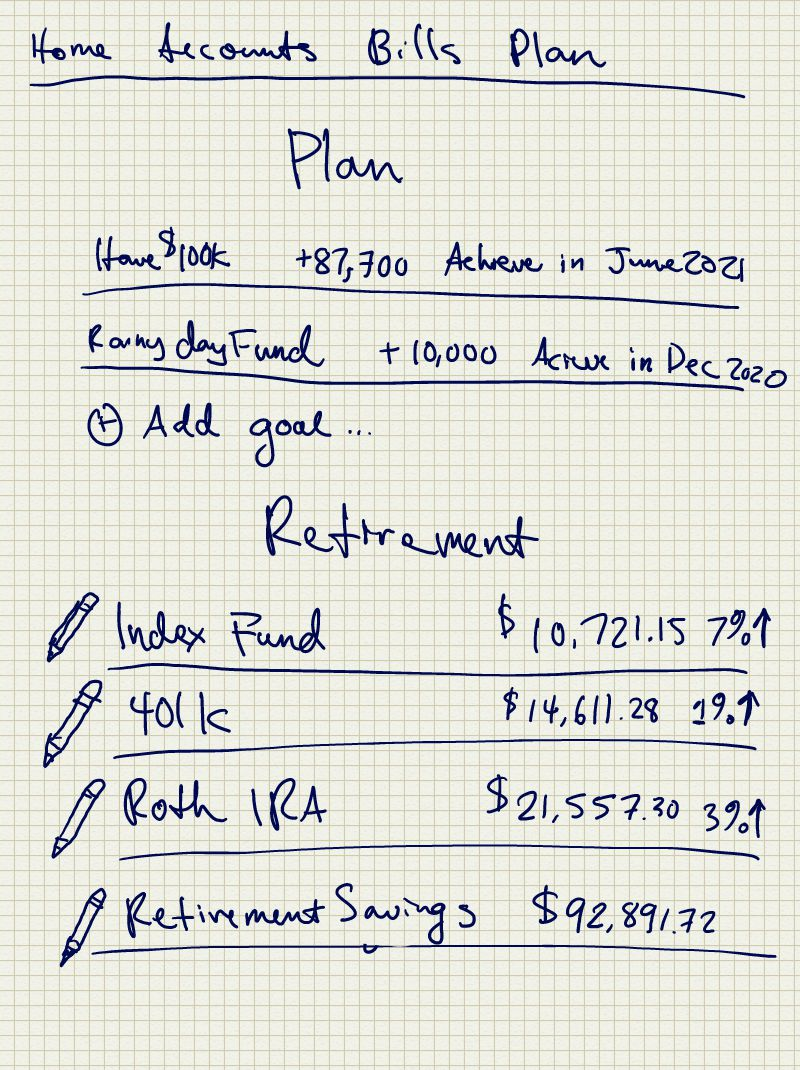 Home Accounts Bills Plan
Plan
Have $100k +87,700 Achieve in June 2021
Rainy day Fund +10,000 Acieve in Dec 2020
+ Add goal...
Retirement
Index Fund $10,721.15 7%↑
401k $14,611.28 1%↑
Roth IRA $21,557.30 3%↑
Retirement Savings $92,891.72